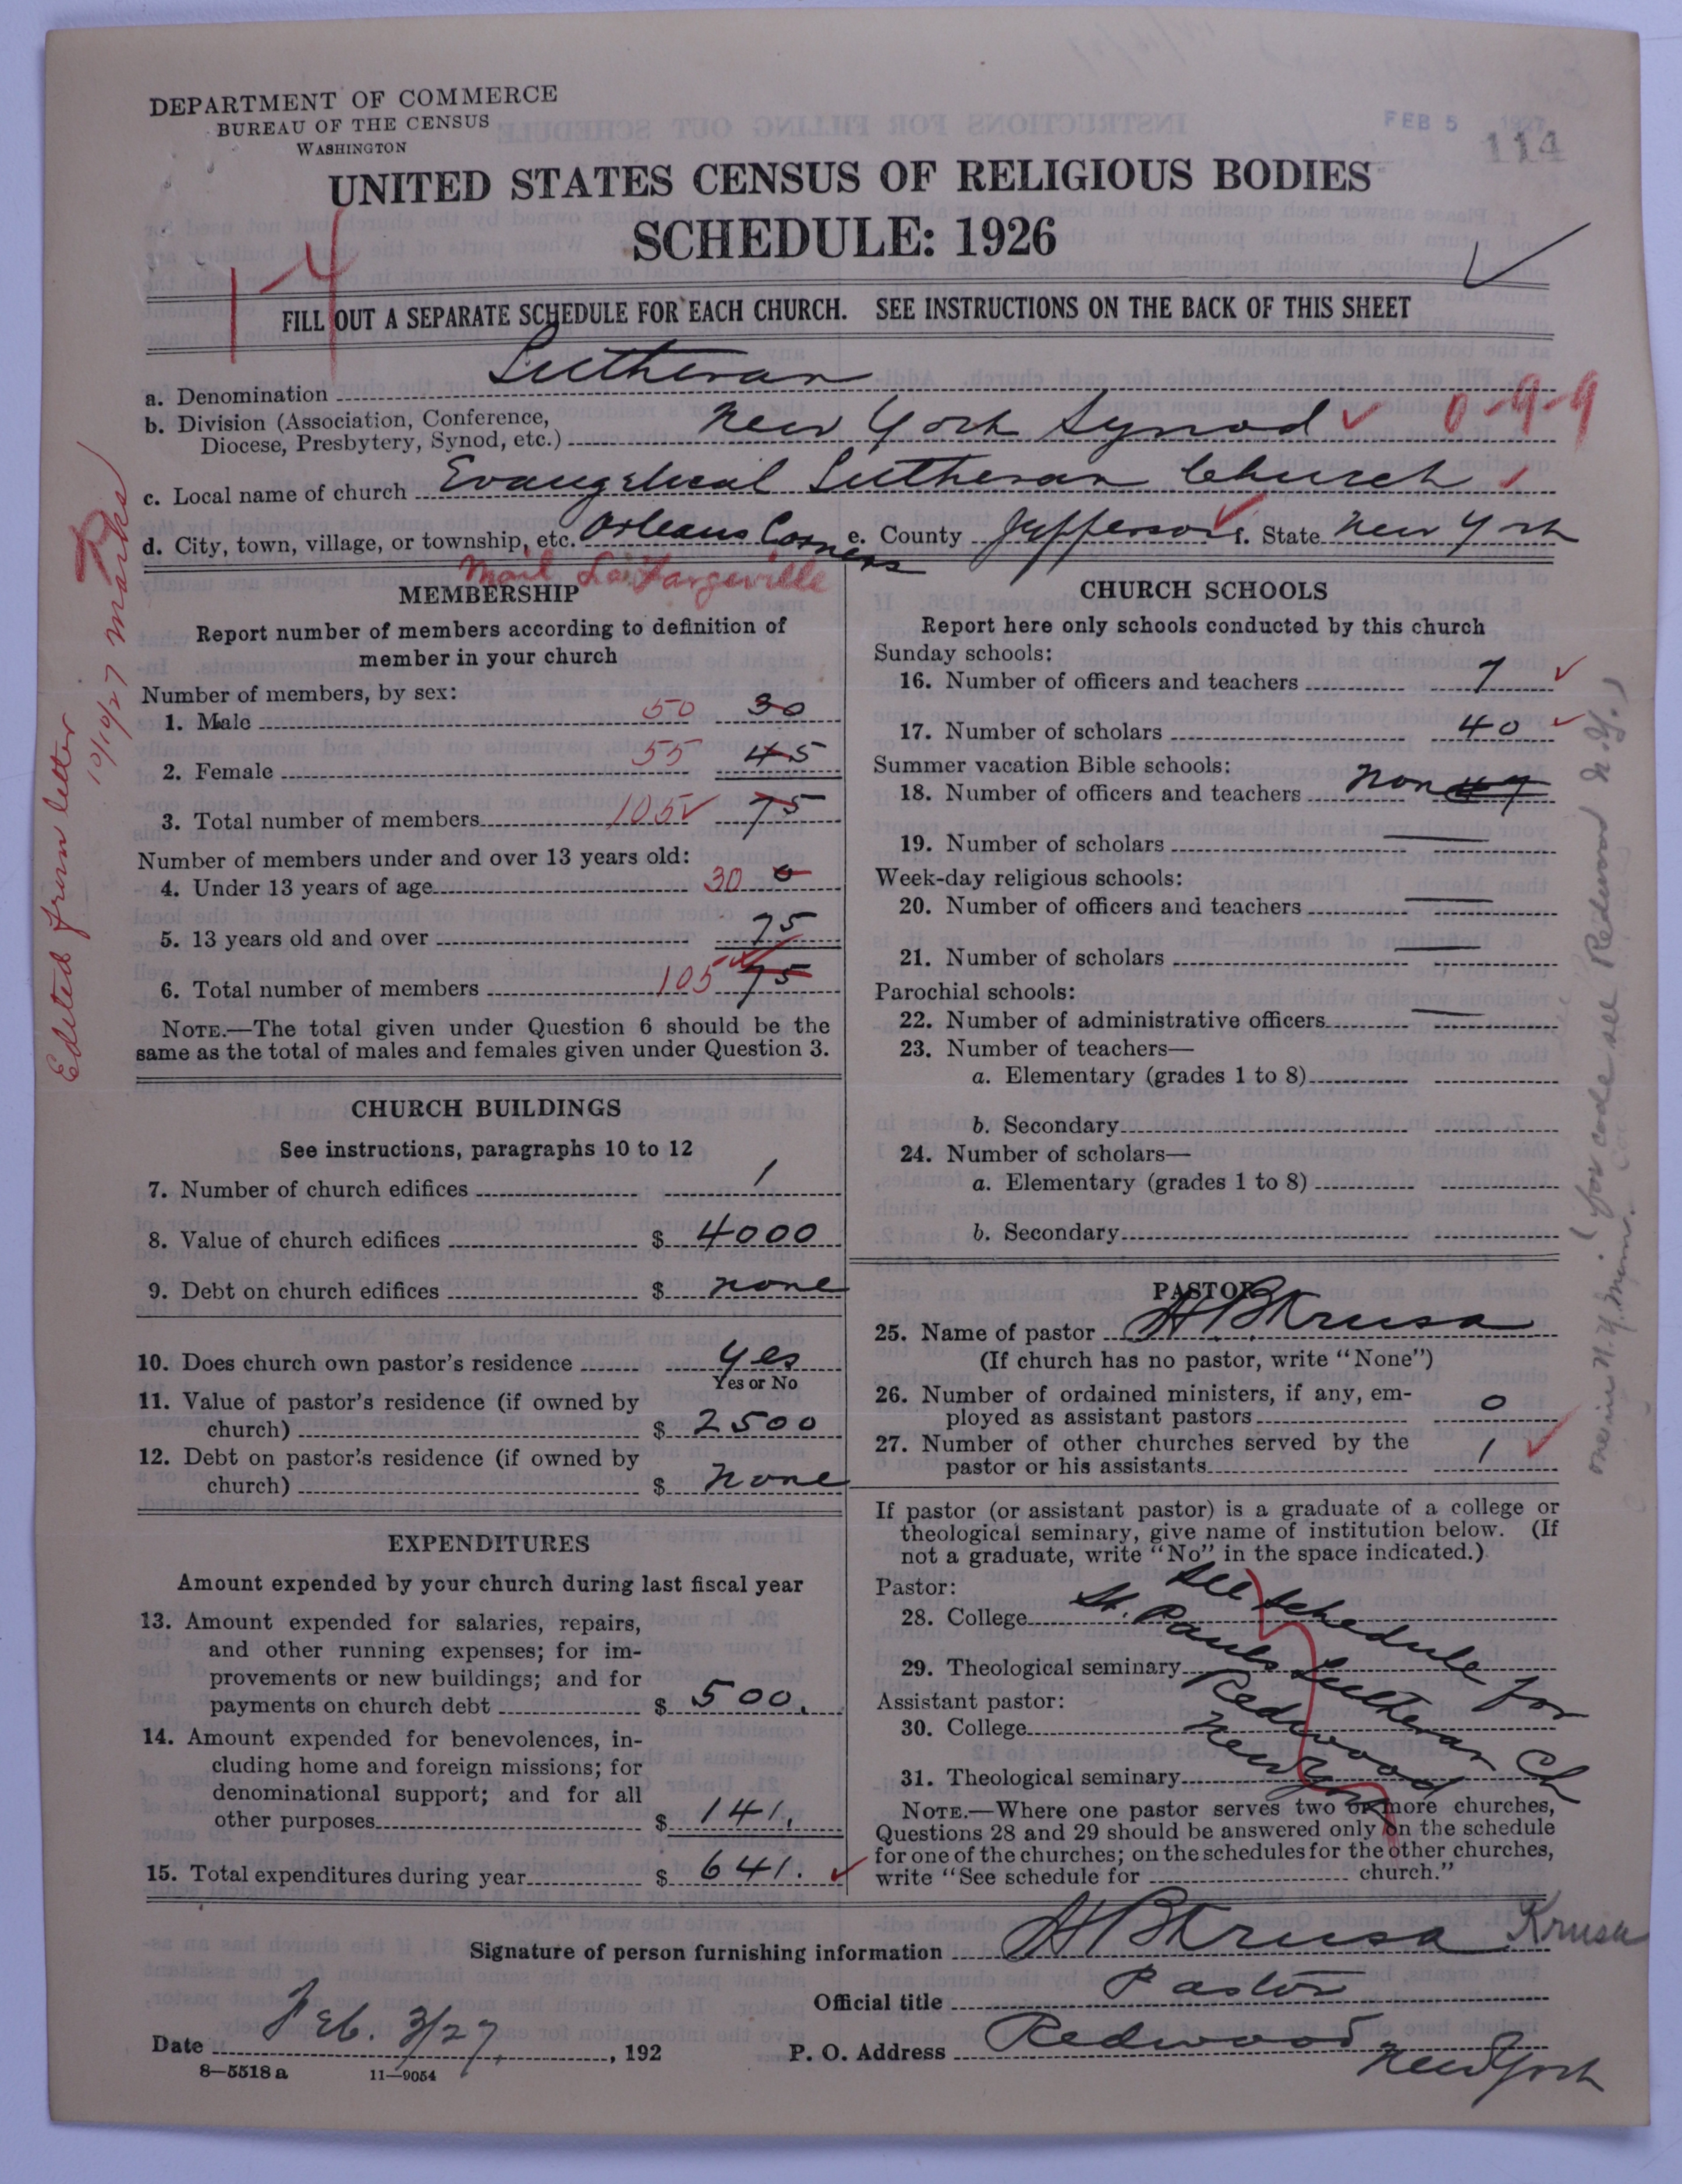 DEPARTMENT OF COMMERCE
BUREAU OF THE CENSUS
WASHINGTON
FEB 5 1927
114
UNITED STATES CENSUS OF RELIGIOUS BODIES
SCHEDULE: 1926
1-4
FILL OUT A SEPARATE SCHEDULE FOR EACH CHURCH. SEE INSTRUCTIONS ON THE BACK OF THIS SHEET
a. Denomination Lutheran
b. Division (Association, Conference, Diocese, Presbytery, Synod, etc.) New York Synod 0-9-9
c. Local name of church Evangelical Lutheran Church
d. City, town, village, or township, etc. Orleans Corners e. County Jefferson f. State New York
Mail LaFargeville
Edited from letter
10/19/27 Marks
MEMBERSHIP
Report number of members according to definition of
member in your church
Number of members, by sex:
1. Male 50 30
2. Female 55 45
3. Total number of members 105 75
Number of members under and over 13 years old:
4. Under 13 years of age 30 0
5. 13 years old and over 75
6. Total number of members 105 75
NOTE.—The total given under Question 6 should be the
same as the total of males and females given under Question 3.
CHURCH BUILDINGS
See instructions, paragraphs 10 to 12
7. Number of church edifices 1
8. Value of church edifices $ 4000
9. Debt on church edifices $ none
10. Does church own pastor's residence yes
Yes or No
11. Value of pastor's residence (if owned by
church) $ 2500
12. Debt on pastor's residence (if owned by
church) $ none
EXPENDITURES
Amount expended by your church during last fiscal year
13. Amount expended for salaries, repairs,
and other running expenses; for im-
provements or new buildings; and for
payments on church debt $ 500.
14. Amount expended for benevolences, in-
cluding home and foreign missions; for
denominational support; and for all
other purposes $ 141.
15. Total expenditures during year $ 641.
CHURCH SCHOOLS
Report here only schools conducted by this church
Sunday schools:
16. Number of officers and teachers 7
17. Number of scholars 40
Summer vacation Bible schools:
18. Number of officers and teachers non
19. Number of scholars
Week-day religious schools:
20. Number of officers and teachers
21. Number of scholars
Parochial schools:
22. Number of administrative officers
23. Number of teachers—
a. Elementary (grades 1 to 8)
b. Secondary
24. Number of scholars—
a. Elementary (grades 1 to 8)
b. Secondary
PASTOR
25. Name of pastor H B Krusa
(If church has no pastor, write "None")
26. Number of ordained ministers, if any, em-
ployed as assistant pastors 0
27. Number of other churches served by the
pastor or his assistants 1
If pastor (or assistant pastor) is a graduate of a college or
theological seminary, give name of institution below. (If
not a graduate, write "No" in the space indicated.)
Pastor:
28. College
29. Theological seminary
Assistant pastor:
30. College
31. Theological seminary
See schedule for
St. Pauls Lutheran Ch
Redwood
New York
NOTE.—Where one pastor serves two or more churches,
Questions 28 and 29 should be answered only on the schedule
for one of the churches; on the schedules for the other churches,
write "See schedule for church."
one in N.Y. Minn. (for code see Redwood N.Y.)
Signature of person furnishing information H B Krusa Krusa
Official title Pastor
Date Feb. 3/27, 192
P. O. Address Redwood New York
8-5518 a 11-9054